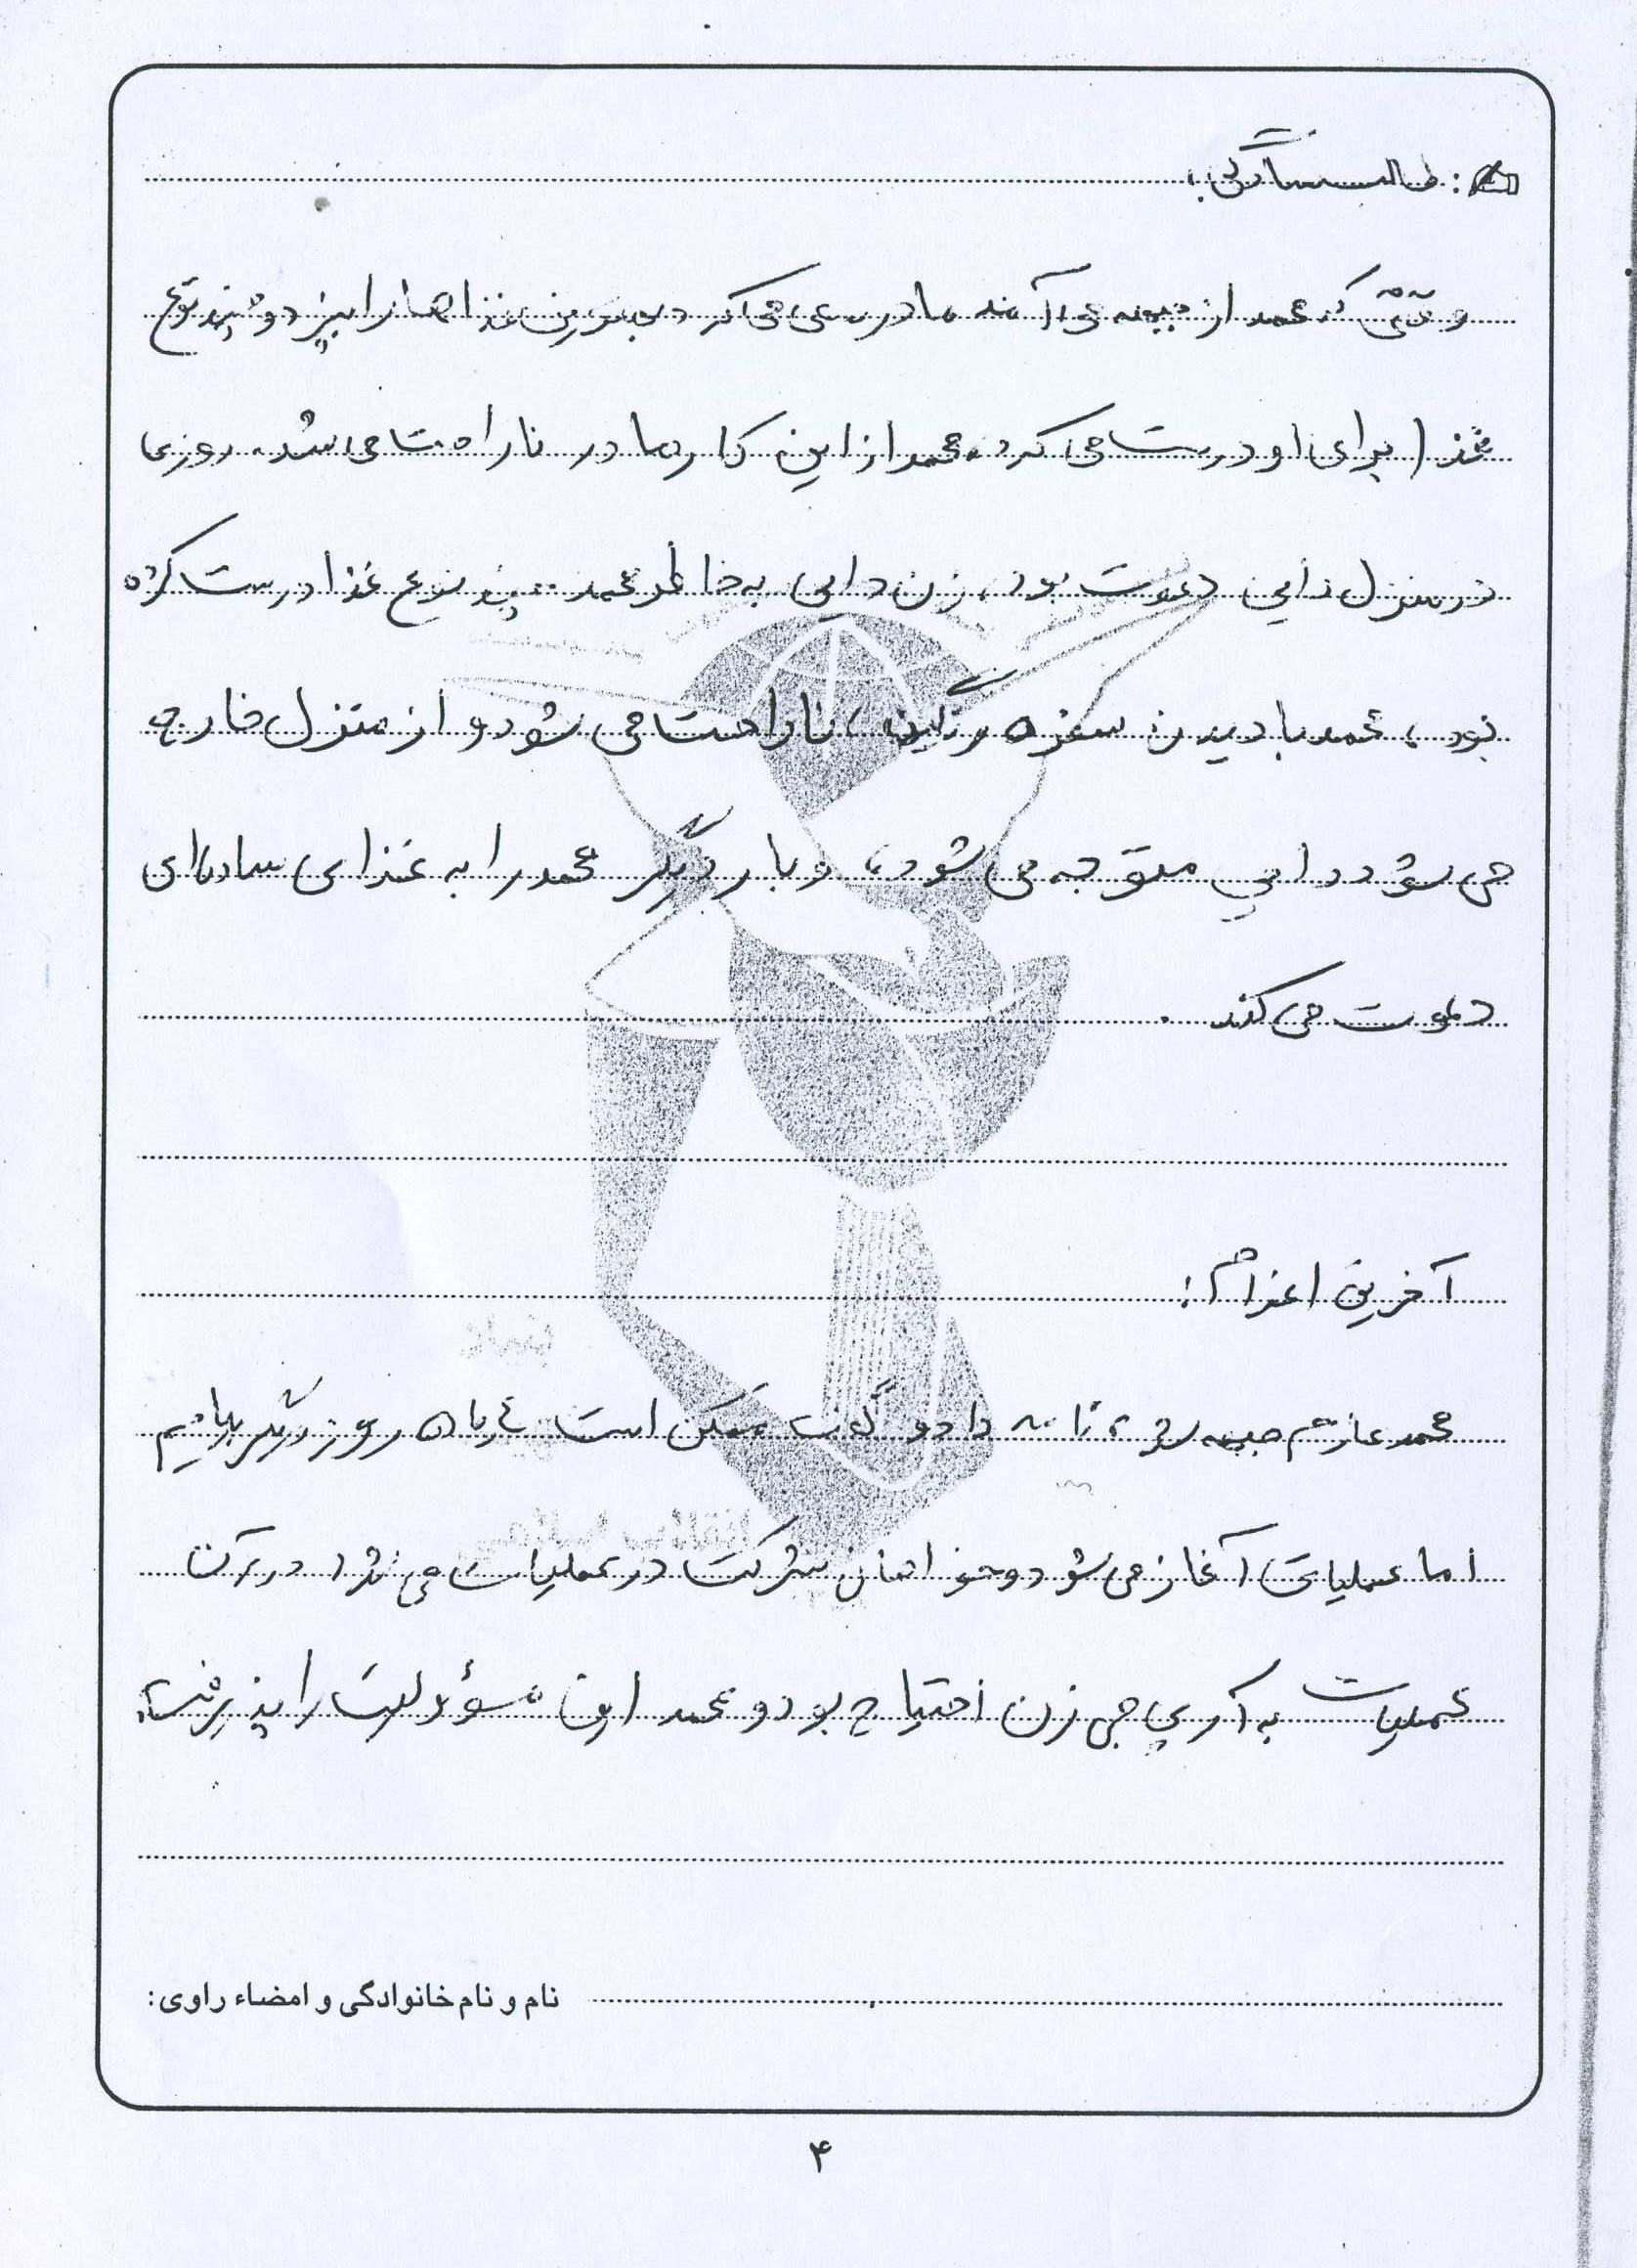 طالب سادگی:
وقتی که محمد از جبهه می آمد، مادر سعی می کرد بهترین غذاها را بپزد و چند نوع
غذا برای او درست می کرد، محمد از این کار مادر ناراحت می شد. روزی
در منزل دایی دعوت بود، زن دایی به خاطر محمد چند نوع غذا درست کرده
بود، محمد با دیدن سفره رنگین، ناراحت می شود و از منزل خارج
می شود دایی متوجه می شود، و بار دیگر محمد را به غذای ساده ای
دعوت می کند.
آخرین اعزام:
محمد عازم جبهه شد، نامه داد و گفت ممکن است تا ده روز دیگر بیایم
اما عملیات آغاز می شود و خواهان شرکت در عملیات می شود در آن
عملیات به آرپی جی زن احتیاج بود و محمد این مسؤولیت را پذیرفت.
نام و نام خانوادگی و امضاء راوی:
۴